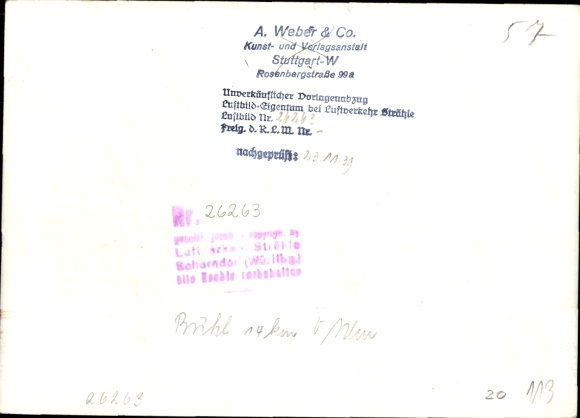 57
A. Weber & Co.
Kunst- und Verlagsanstalt
Stuttgart-W
Rosenbergstraße 99a
Unverkäuflicher Vorlagenabzug
Luftbild-Eigentum bei Luftverkehr Strähle
Luftbild Nr. 26263
Freig. d. R. L. M. Nr. -
nachgeprüft: 23.11.39
Nr. 26263
gesetzl. gesch. - copyright. by
Luftverkehr Strähle
Schorndorf (Württbg.)
Alle Rechte vorbehalten
Bühl 14km
26263
20 113